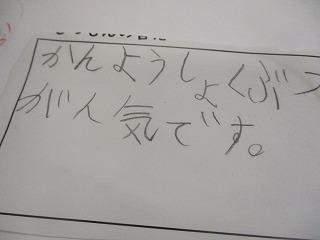 かんようしょくぶつ
が人気です。